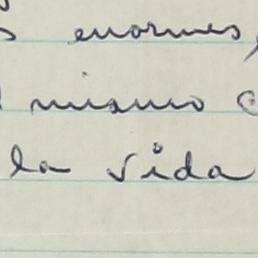 enormes,
mismo
la vida